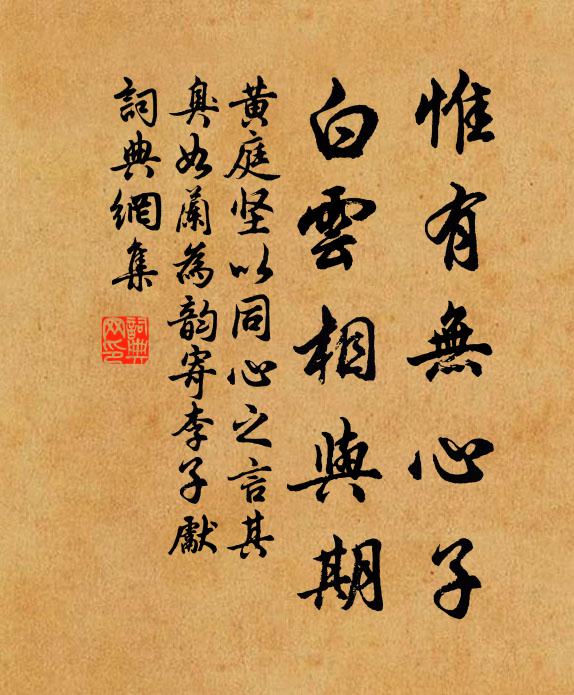 惟有無心子
白雲相與期
黄庭坚以同心之言其
臭如蘭為韵寄李子獻
詞典網集
詞典网印